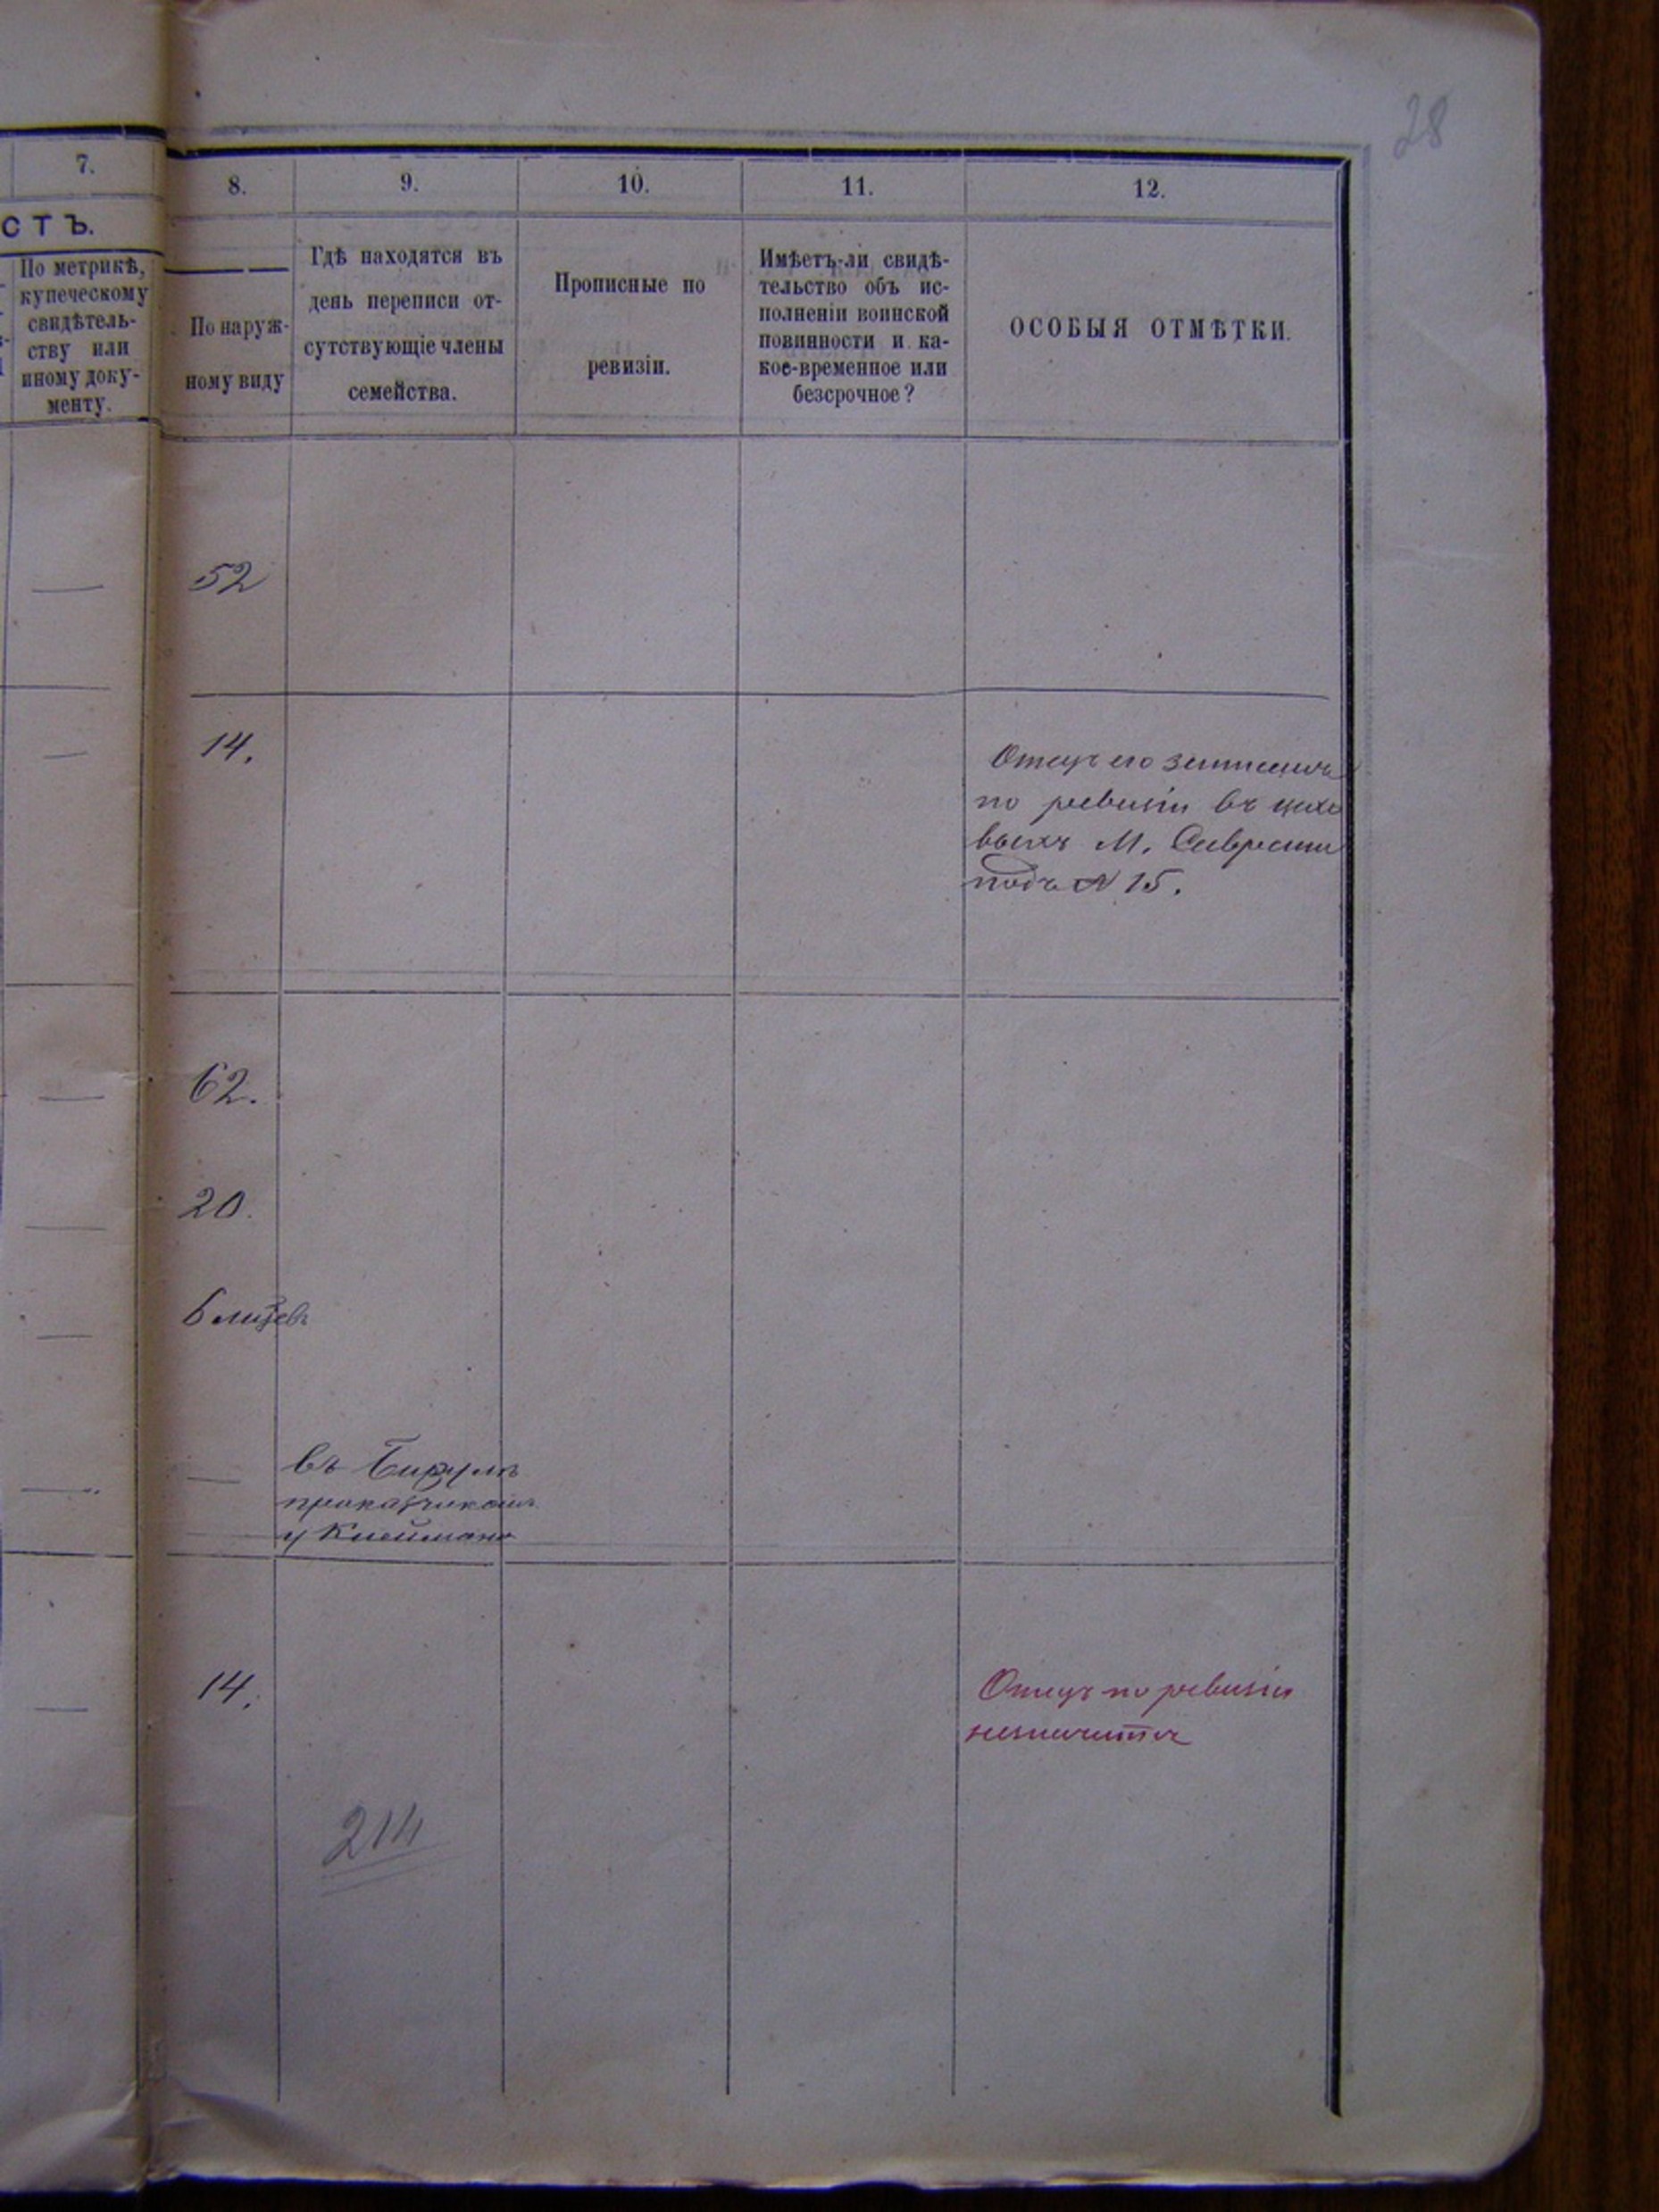 28
7.
8.
9.
10.
11.
12.
СТЪ.
По метрикѣ,
купеческому
свидѣтель-
ству или
иному доку-
менту.
По наруж-
ному виду
Гдѣ находятся въ
день переписи от-
сутствующіе члены
семейства.
Прописные по
ревизіи.
Имѣетъ-ли свидѣ-
тельство объ ис-
полненіи воинской
повинности и ка-
кое-временное или
безсрочное?
ОСОБЫЯ ОТМѢТКИ.
52
14.
Отецъ его записанъ
по ревизіи въ цехо
выхъ М. Саврани
подъ № 15.
62.
20.
6 мѣсяцевъ
въ
приказчикомъ
у
14.
Отецъ по ревизіи
незначится
214